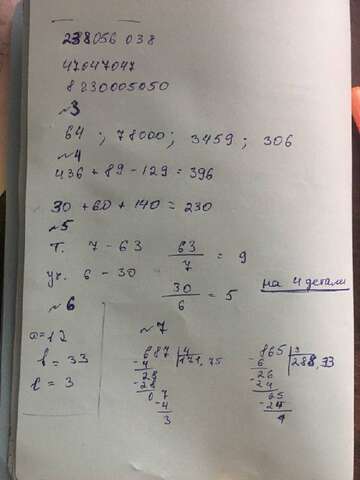 238056 038
47047047
8230005050
№3
64 ; 78000 ; 3459 ; 306
№4
436 + 89 - 129 = 396
30 + 60 + 140 = 230
№5
т. 7 - 63 63/7 = 9
уч. 6 - 30 30/6 = 5 на 4 детали
№6
a=12
b = 33
= 3
№7
687 4
- 4 171,75
28
- 28
07
- 4
3
865 3
- 6 288,33
26
- 24
25
- 24